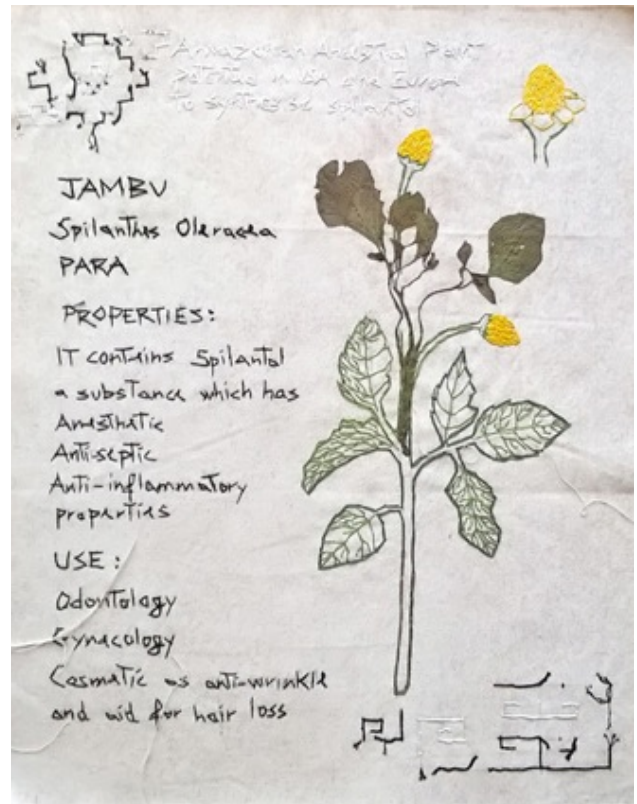 Amazonian Ancestral Plant
patented in USA and Europe
to synthesise spilantol
JAMBU
Spilanthes Oleracea
PARA
PROPERTIES:
IT contains Spilantol
a substance which has
Anesthetic
Anti-septic
Anti-inflammatory
properties
USE:
Odontology
Gynecology
Cosmetic as anti-wrinkle
and aid for hair loss